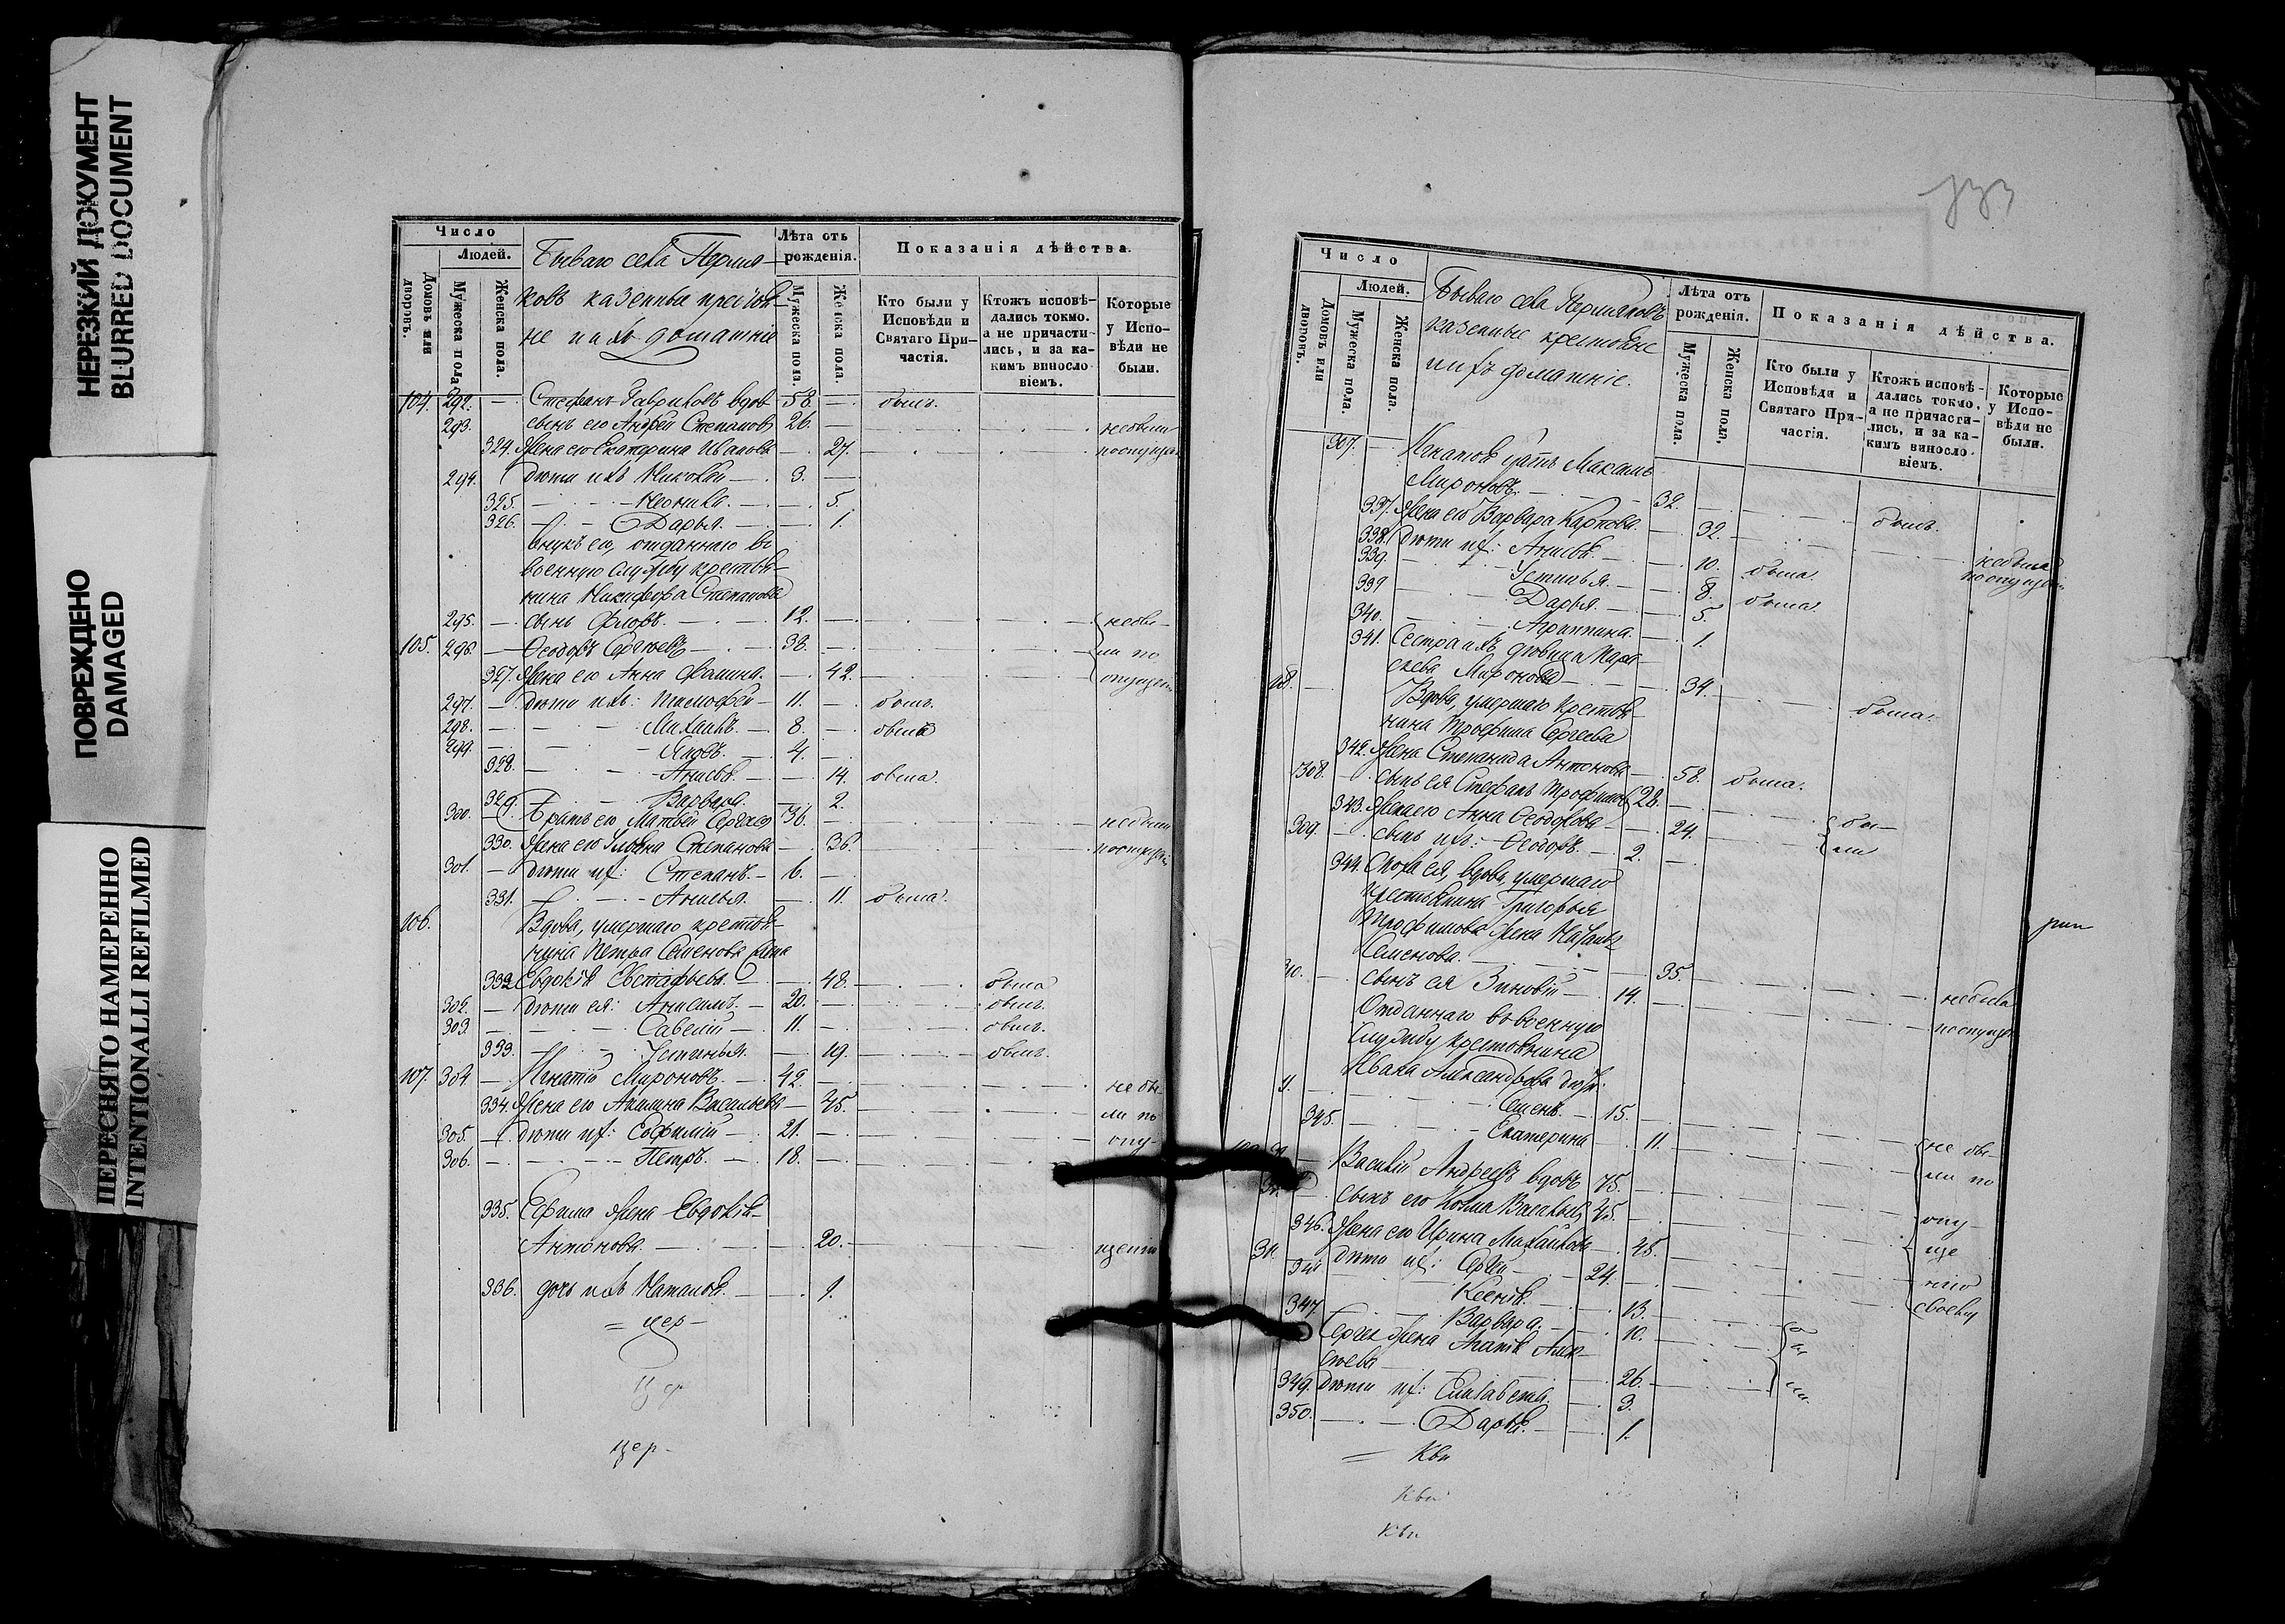 НЕРЕЗКИЙ ДОКУМЕНТ
BLURRED DOCUMENT
ПОВРЕЖДЕНО
DAMAGED
ПЕРЕСНЯТО НАМЕРЕННО
INTENTIONALLI REFILMED
Число
Людей.
Домовъ или дворовъ.
Мужеска пола
Женска пола.
Бываго села
ковъ казенные
не и ихъ домашніе
Лѣта отъ рожденія.
Мужеска пола.
Женска пола.
Показанія дѣйства.
Кто были у Исповѣди и Святаго Причастія.
Ктожъ исповѣдались токмо. а не причастились, и за какимъ винословіемъ.
Которые у Исповѣди не были.
104. 292. — Стефанъ Гавриловъ вдов 58. — былъ.
293. сынъ его Андрей Степановъ 26. — небыли
324. Жена его Екатерина Иванова — 27. поопущ
294. Дѣти ихъ Николай — 3. —
325. — Неонила. — 5.
326. — Дарья. — 1.
внукъ его, отданнаго въ
военную службу крестья-
нина Никифора Степанова
295. — сынъ Флоръ. — 12. — небы-
105. 296. — Ѳеодоръ Сергѣевъ — 38. — ли по
327. Жена его Анна Фомина. — 42. опущен
297. — дѣти ихъ: Тимофей — 11. — былъ.
298. — Михаилъ. — 8. — былъ
299. — Яковъ. — 4. —
328. — Анисья. — 14. была.
329. — Варвара. 2.
300. — Братъ его Матвей Сергѣев 36. — небыли
330. Жена его Ульяна Степанова — 36. поопущен
301. — дѣти их: Степанъ. — 6. —
331. — Анисья. — 11. была.
106. Вдова, умершаго крестья-
нина Петра Семенова жена
332. Евдокія Евстафьева. — 48. — была
302. — Дѣти ея: Анисимъ. — 20. — былъ.
303. — Савелій — 11. — былъ.
333. — Устинья. — 19. — была.
107. 304. — Игнатій Мироновъ. — 42. — не бы-
334. Жена его Акилина Васильева — 45. — ли по
305. — дѣти их: — 21. — опу-
306. — Петръ. — 18. —
335. Жена Евдокія
Антонова. — 20. — щенію
336. дочь ихъ Наталья. — 1.
= цер-
цер-
цер-
Число
Людей.
Домовъ или дворовъ.
Мужеска пола.
Женска пола.
Бываго села
казенные крестьяне
и ихъ домашніе.
Лѣта отъ рожденія.
Мужеска пола.
Женска пола.
Показанія дѣйства.
Кто были у Исповѣди и Святаго Причастія.
Ктожъ исповѣдались токмо, а не причастились, и за какимъ винословіемъ.
Которые у Исповѣди не были.
307. — Игнатія братъ Максимъ
Мироновъ. — 32. — былъ.
337. Жена его Варвара Карпова — 32. — небыла
338. Дѣти их: Анисья. — 10. была. поопущен
339. — Устинья. — 8. была
339 — Дарья. — 5.
340. — Агриппина. — 1.
341. Сестра ихъ дѣвица Пара-
скева Миронова — 34. — была.
Вдова, умершаго крестья-
нина Трофима Сергеева
342. Жена Степанида Антонова — 58. была.
308. — сынъ ея Стефанъ Трофимов 28. —
343. Жена его Анна Ѳеодорова — 24. бы-
309. — сынъ ихъ: Ѳеодоръ. — 2. — ли
344. Сноха ея, вдова, умершаго
крестьянина Григорья
Трофимова жена Наталья
Семенова. — 35. — небыла
сынъ ея Зиновій — 14. — поопущен
Отданнаго въ военную
службу крестьянина
Ивана Александрова дѣти:
Семенъ. — 15. —
345. — Екатерина — 11. не бы-
Василій Андреевъ вдовъ 75. — ли по
— сынъ его Козма Васильев 45. —
346. Жена его Ирина Михайлова — 45. опу-
дѣти их: Сергей — 24. — ще
Ксенія. — 13. нію
347. — Варвара. — 10. своему
Сергея жена Агапія Алек-
сѣева — 26.
349. Дѣти их: Елисавета. — 3.
350. — Дарья. — 1.
= Кви
Кви
Кви